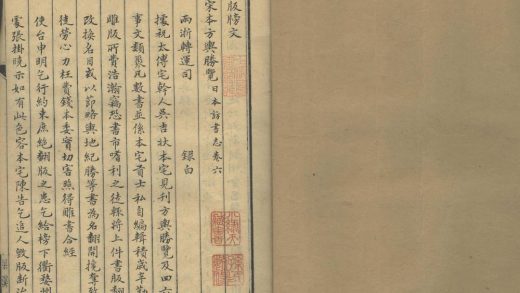 版牓文
宋本方輿勝覽 日本訪書志卷六
兩淛轉運司 錄白
據祝太傅宅幹人吳吉狀本宅見刊方輿勝覽及四六
事文類聚凡數書並係本宅貢士私自編輯積歲辛勤
雕版所費浩瀚竊恐書市嗜利之徒輒將上件書版翻
改換名目或以節略輿地紀勝等書為名翻開攙奪致
徒勞心力枉費錢本委實切害照得雕書合經
使台申明乞行約束庶絕翻版之患乞給榜下衢婺州
處張掛曉示如有此色容本宅陳告乞追人毀版斷治